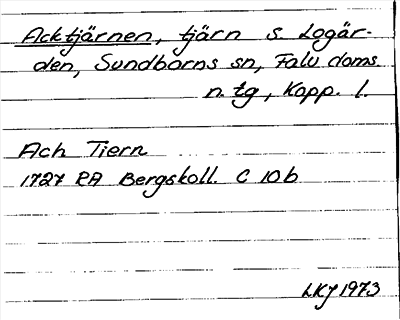 Acktjärnen, tjärn s. Logär-
den, Sundborns sn, Falu doms.
n. tg, Kopp. l.
Ach Tiern
1727 RA Bergskoll. C 10b
LKJ 1973